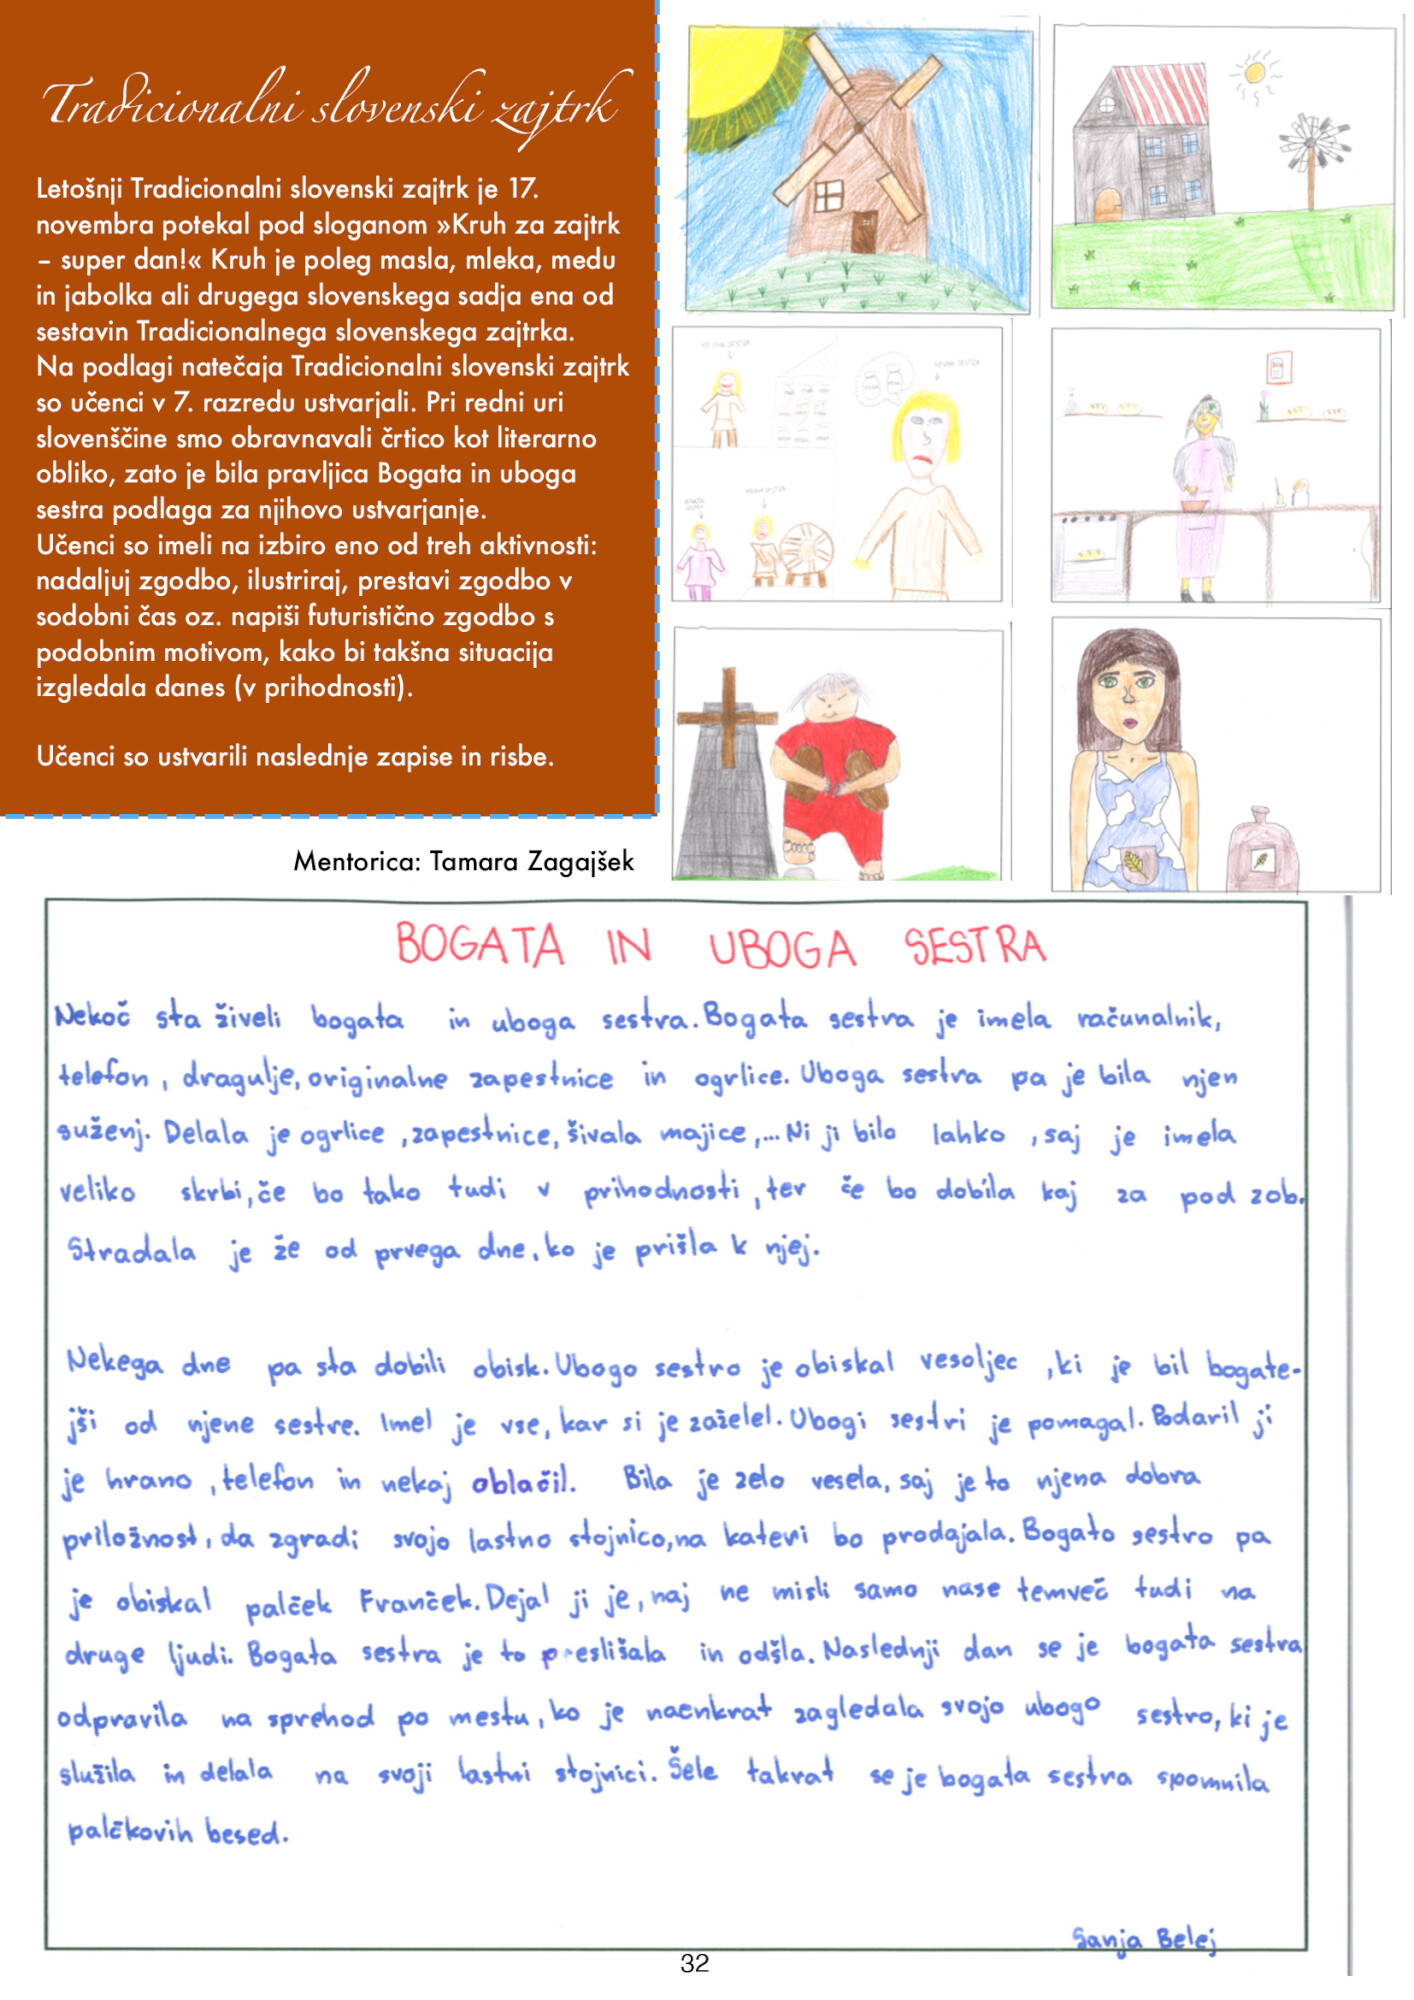 Tradicionalni slovenski zajtrk
Letošnji Tradicionalni slovenski zajtrk je 17.
novembra potekal pod sloganom »Kruh za zajtrk
– super dan!« Kruh je poleg masla, mleka, medu
in jabolka ali drugega slovenskega sadja ena od
sestavin Tradicionalnega slovenskega zajtrka.
Na podlagi natečaja Tradicionalni slovenski zajtrk
so učenci v 7. razredu ustvarjali. Pri redni uri
slovenščine smo obravnavali črtico kot literarno
obliko, zato je bila pravljica Bogata in uboga
sestra podlaga za njihovo ustvarjanje.
Učenci so imeli na izbiro eno od treh aktivnosti:
nadaljuj zgodbo, ilustriraj, prestavi zgodbo v
sodobni čas oz. napiši futuristično zgodbo s
podobnim motivom, kako bi takšna situacija
izgledala danes (v prihodnosti).
Učenci so ustvarili naslednje zapise in risbe.
Mentorica: Tamara Zagajšek
BOGATA IN UBOGA SESTRA
Nekoč sta živeli bogata in uboga sestra. Bogata sestra je imela računalnik,
telefon, dragulje, originalne zapestnice in ogrlice. Uboga sestra pa je bila njen
suženj. Delala je ogrlice, zapestnice, šivala majice,... Ni ji bilo lahko, saj je imela
veliko skrbi, če bo tako tudi v prihodnosti, ter če bo dobila kaj za pod zob.
Stradala je že od prvega dne, ko je prišla k njej.
Nekega dne pa sta dobili obisk. Ubogo sestro je obiskal vesoljec, ki je bil bogate-
jši od njene sestre. Imel je vse, kar si je zaželel. Ubogi sestri je pomagal. Podaril ji
je hrano, telefon in nekaj oblačil. Bila je zelo vesela, saj je to njena dobra
priložnost, da zgradi svojo lastno stojnico, na kateri bo prodajala. Bogato sestro pa
je obiskal palček Franček. Dejal ji je, naj ne misli samo nase temveč tudi na
druge ljudi. Bogata sestra je to preslišala in odšla. Naslednji dan se je bogata sestra
odpravila na sprehod po mestu, ko je naenkrat zagledala svojo ubogo sestro, ki je
služila in delala na svoji lastni stojnici. Šele takrat se je bogata sestra spomnila
palčkovih besed.
Sanja Belej
32